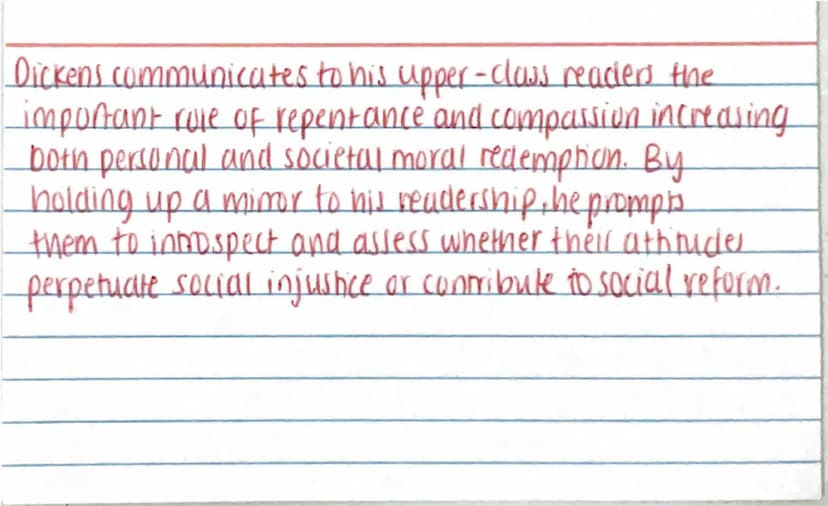 Dickens communicates to his upper-class readers the
important role of repentance and compassion increasing
both personal and societal moral redemption. By
holding up a mirror to his readership, he prompts
them to introspect and assess whether their attitudes
perpetuate social injustice or contribute to social reform.